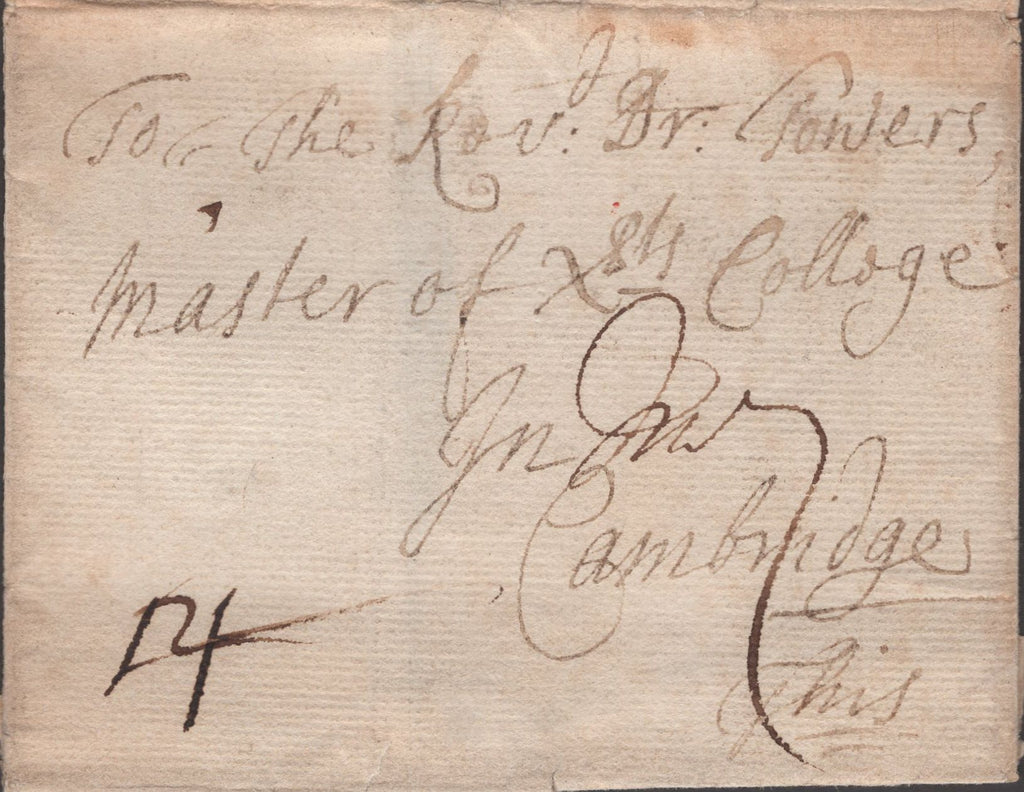 To The Revd. Dr. Towers,
Master of Xsts College
In
Cambridge
This